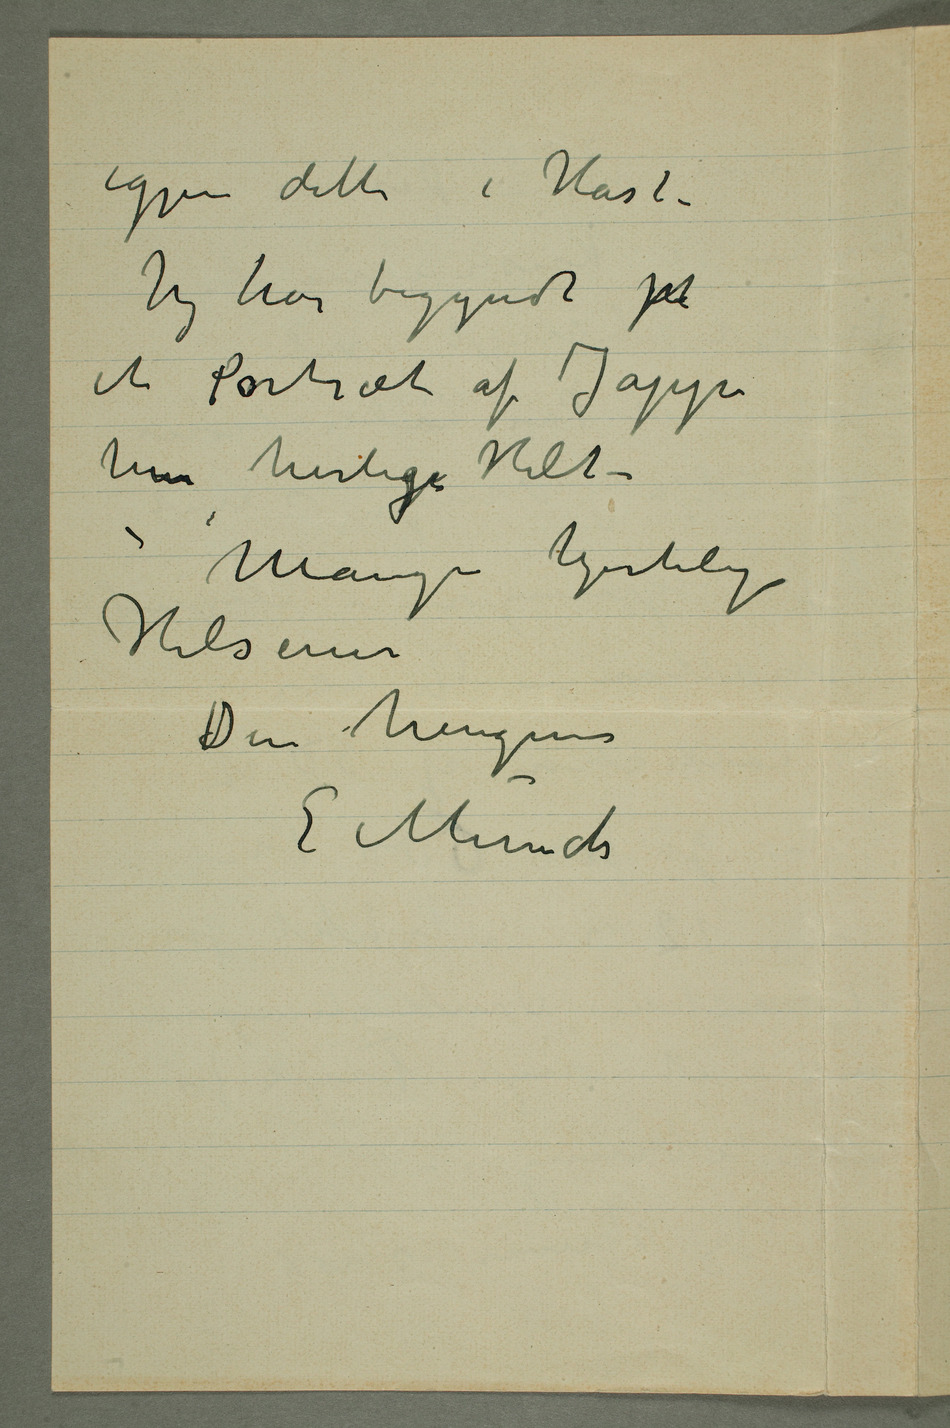 igjen dette i Hast –
Jeg har begyndt på
et Portræt af Jappe
hin herlige Helt –
Mange hjertelige
Hilsener
Din hengivne
E Munch